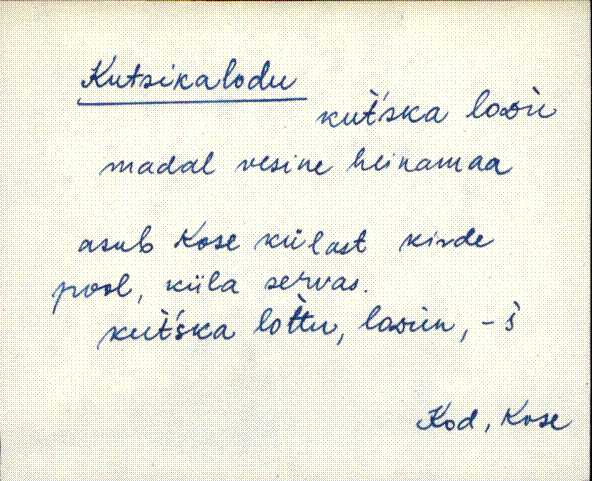 Kutsikalodu
kut̀'ska looùu
madal vesine heinamaa
asub Kose külast kirde
pool, küla servas.
kut̀'ska lot̀tu, looun, -š
Kod, Kose